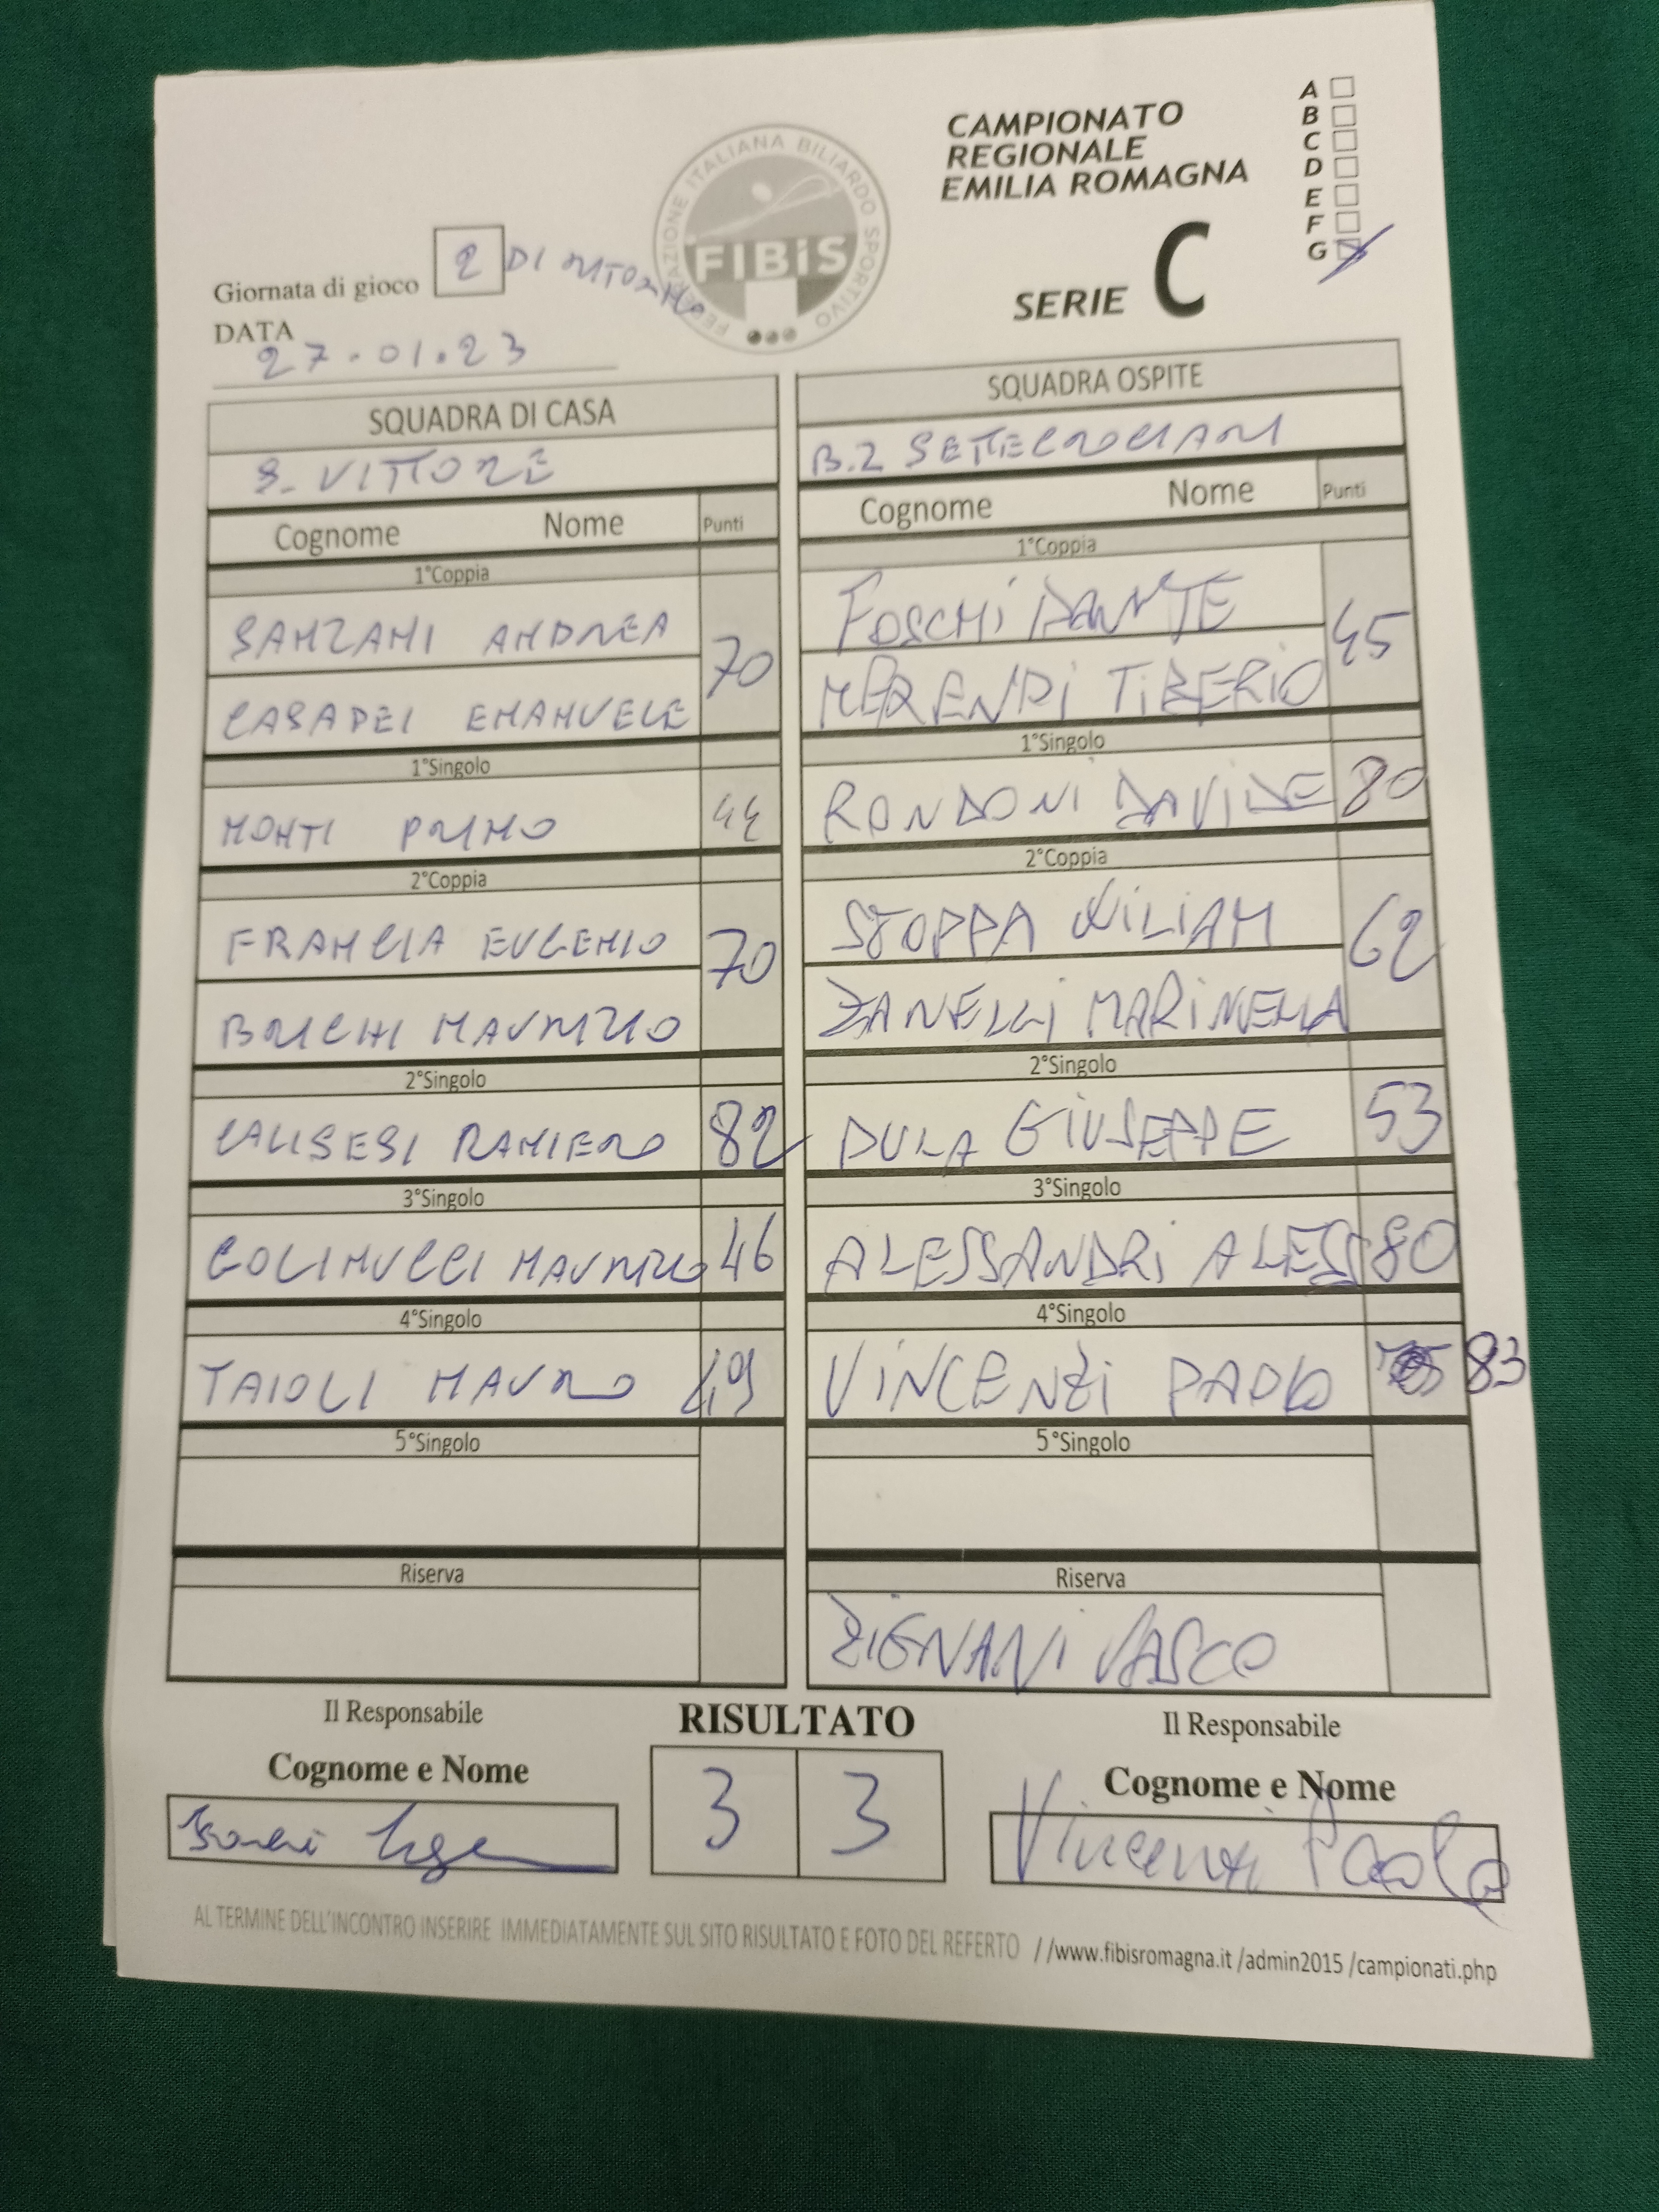 CAMPIONATO
REGIONALE
EMILIA ROMAGNA
SERIE C
A
B
C
D
E
F
G
FEDERAZIONE ITALIANA BILIARDO SPORTIVO
FIBiS
Giornata di gioco 2 DI RITORNO
DATA
27.01.23
SQUADRA DI CASA
S. VITTORE
Cognome Nome Punti
1°Coppia
SANZANI ANDREA 70
CASADEI EMANUELE
1°Singolo
MONTI PRIMO 44
2°Coppia
FRANCIA EUGENIO 70
BRICHI MAURIZIO
2°Singolo
CALISESI RANIERO 82
3°Singolo
COLINUCCI MAURIZIO 46
4°Singolo
TAIOLI MAURO 49
5°Singolo
Riserva
SQUADRA OSPITE
B.2 SETTECROCIARI
Cognome Nome Punti
1°Coppia
FOSCHI DANTE 45
MERENDI TIBERIO
1°Singolo
RONDONI DAVIDE 80
2°Coppia
STOPPA WILIAM 62
ZANELLI MARINELLA
2°Singolo
DULA GIUSEPPE 53
3°Singolo
ALESSANDRI ALESS 80
4°Singolo
VINCENZI PAOLO 83
5°Singolo
Riserva
ZIGNANI VASCO
Il Responsabile
Cognome e Nome
RISULTATO
3 3
Il Responsabile
Cognome e Nome
Vincenzi Paolo
AL TERMINE DELL'INCONTRO INSERIRE IMMEDIATAMENTE SUL SITO RISULTATO E FOTO DEL REFERTO //www.fibisromagna.it /admin2015 /campionati.php